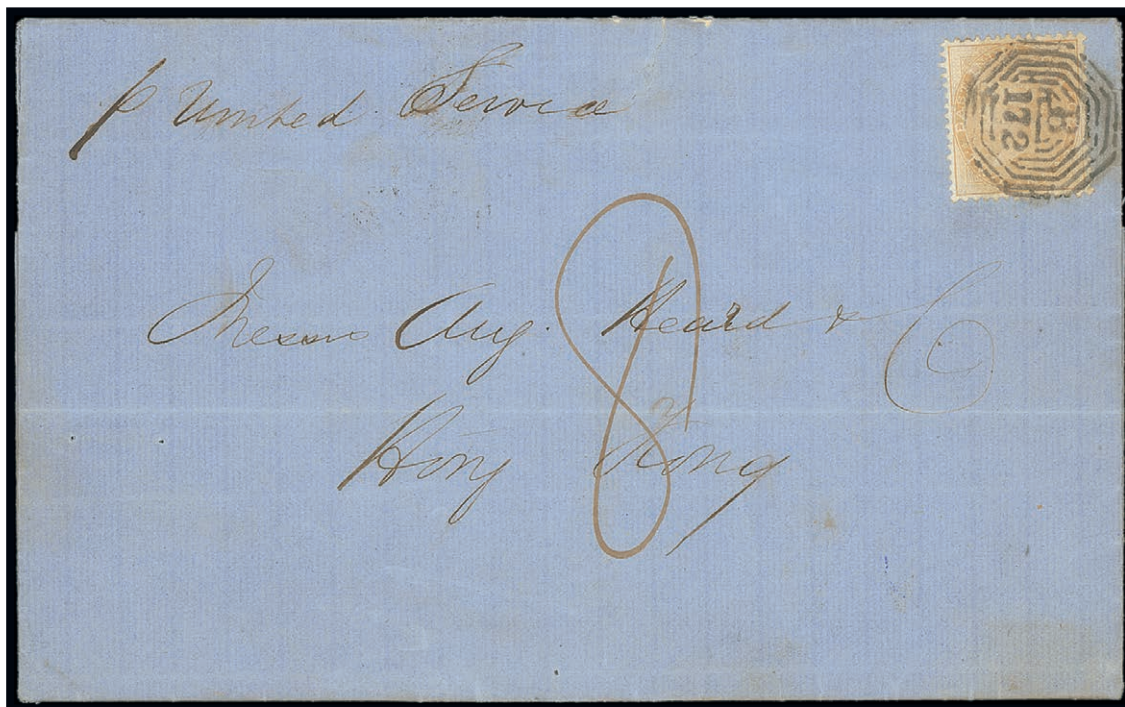 p United Service
B
172
Messrs Aug. Heard & Co
8
Hong Kong